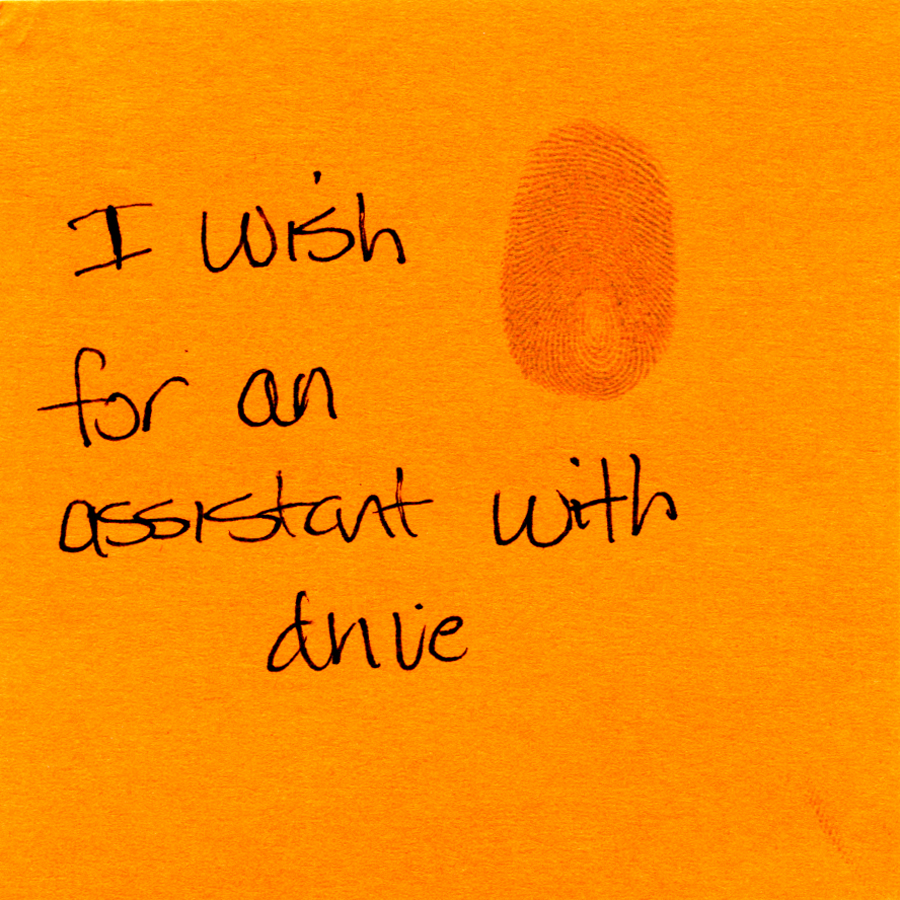 I wish
for an
assistant with
drive